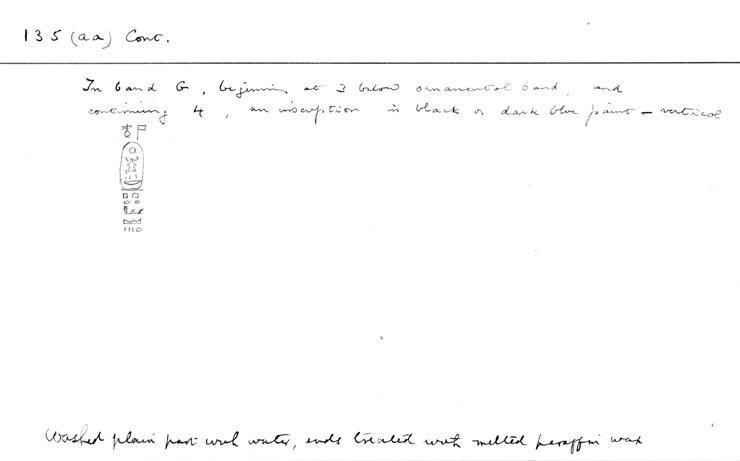 135 (aa) Cont.
In band G, beginning at 3 below ornamental band, and
continuing 4, an inscription in black or dark blue paint – vertical
Washed plain part with water, ends treated with melted paraffin wax